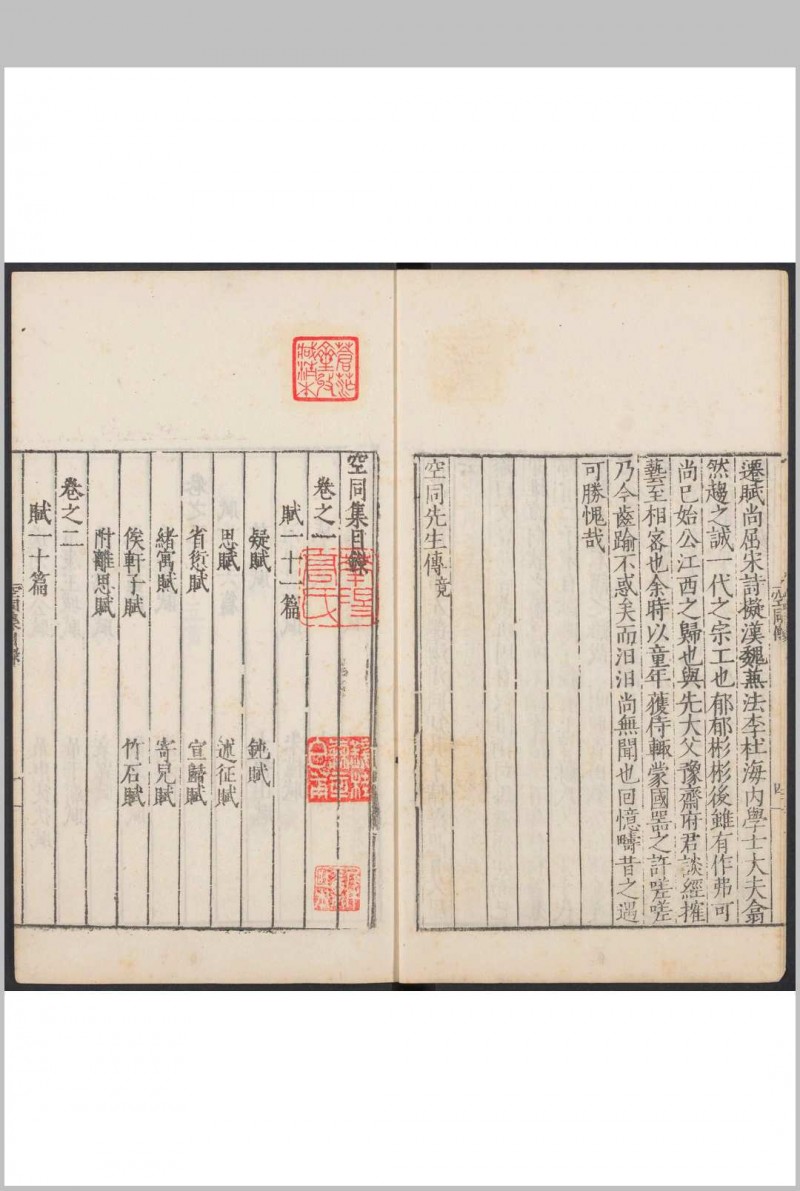 遷賦尚屈宋詩擬漢魏蕪法李杜海内學士大夫翕
然趨之誠一代之宗工也郁郁彬彬後雖有作弗可
尚已始公江西之歸也與先大父豫齋府君談經搉
藝至相密也余時以童年獲侍輒蒙國器之許嗟嗟
乃今齒踰不惑矣而汨汨尚無聞也回憶疇昔之遇
可勝愧哉
空同先生傳竟
空同集目錄
卷之一
賦二十一篇
疑賦 鈍賦
思賦 述征賦
省愆賦 宣歸賦
緒寓賦 寄兒賦
俟軒子賦 竹石賦
附離思賦
卷之二
賦一十篇
空同集目錄